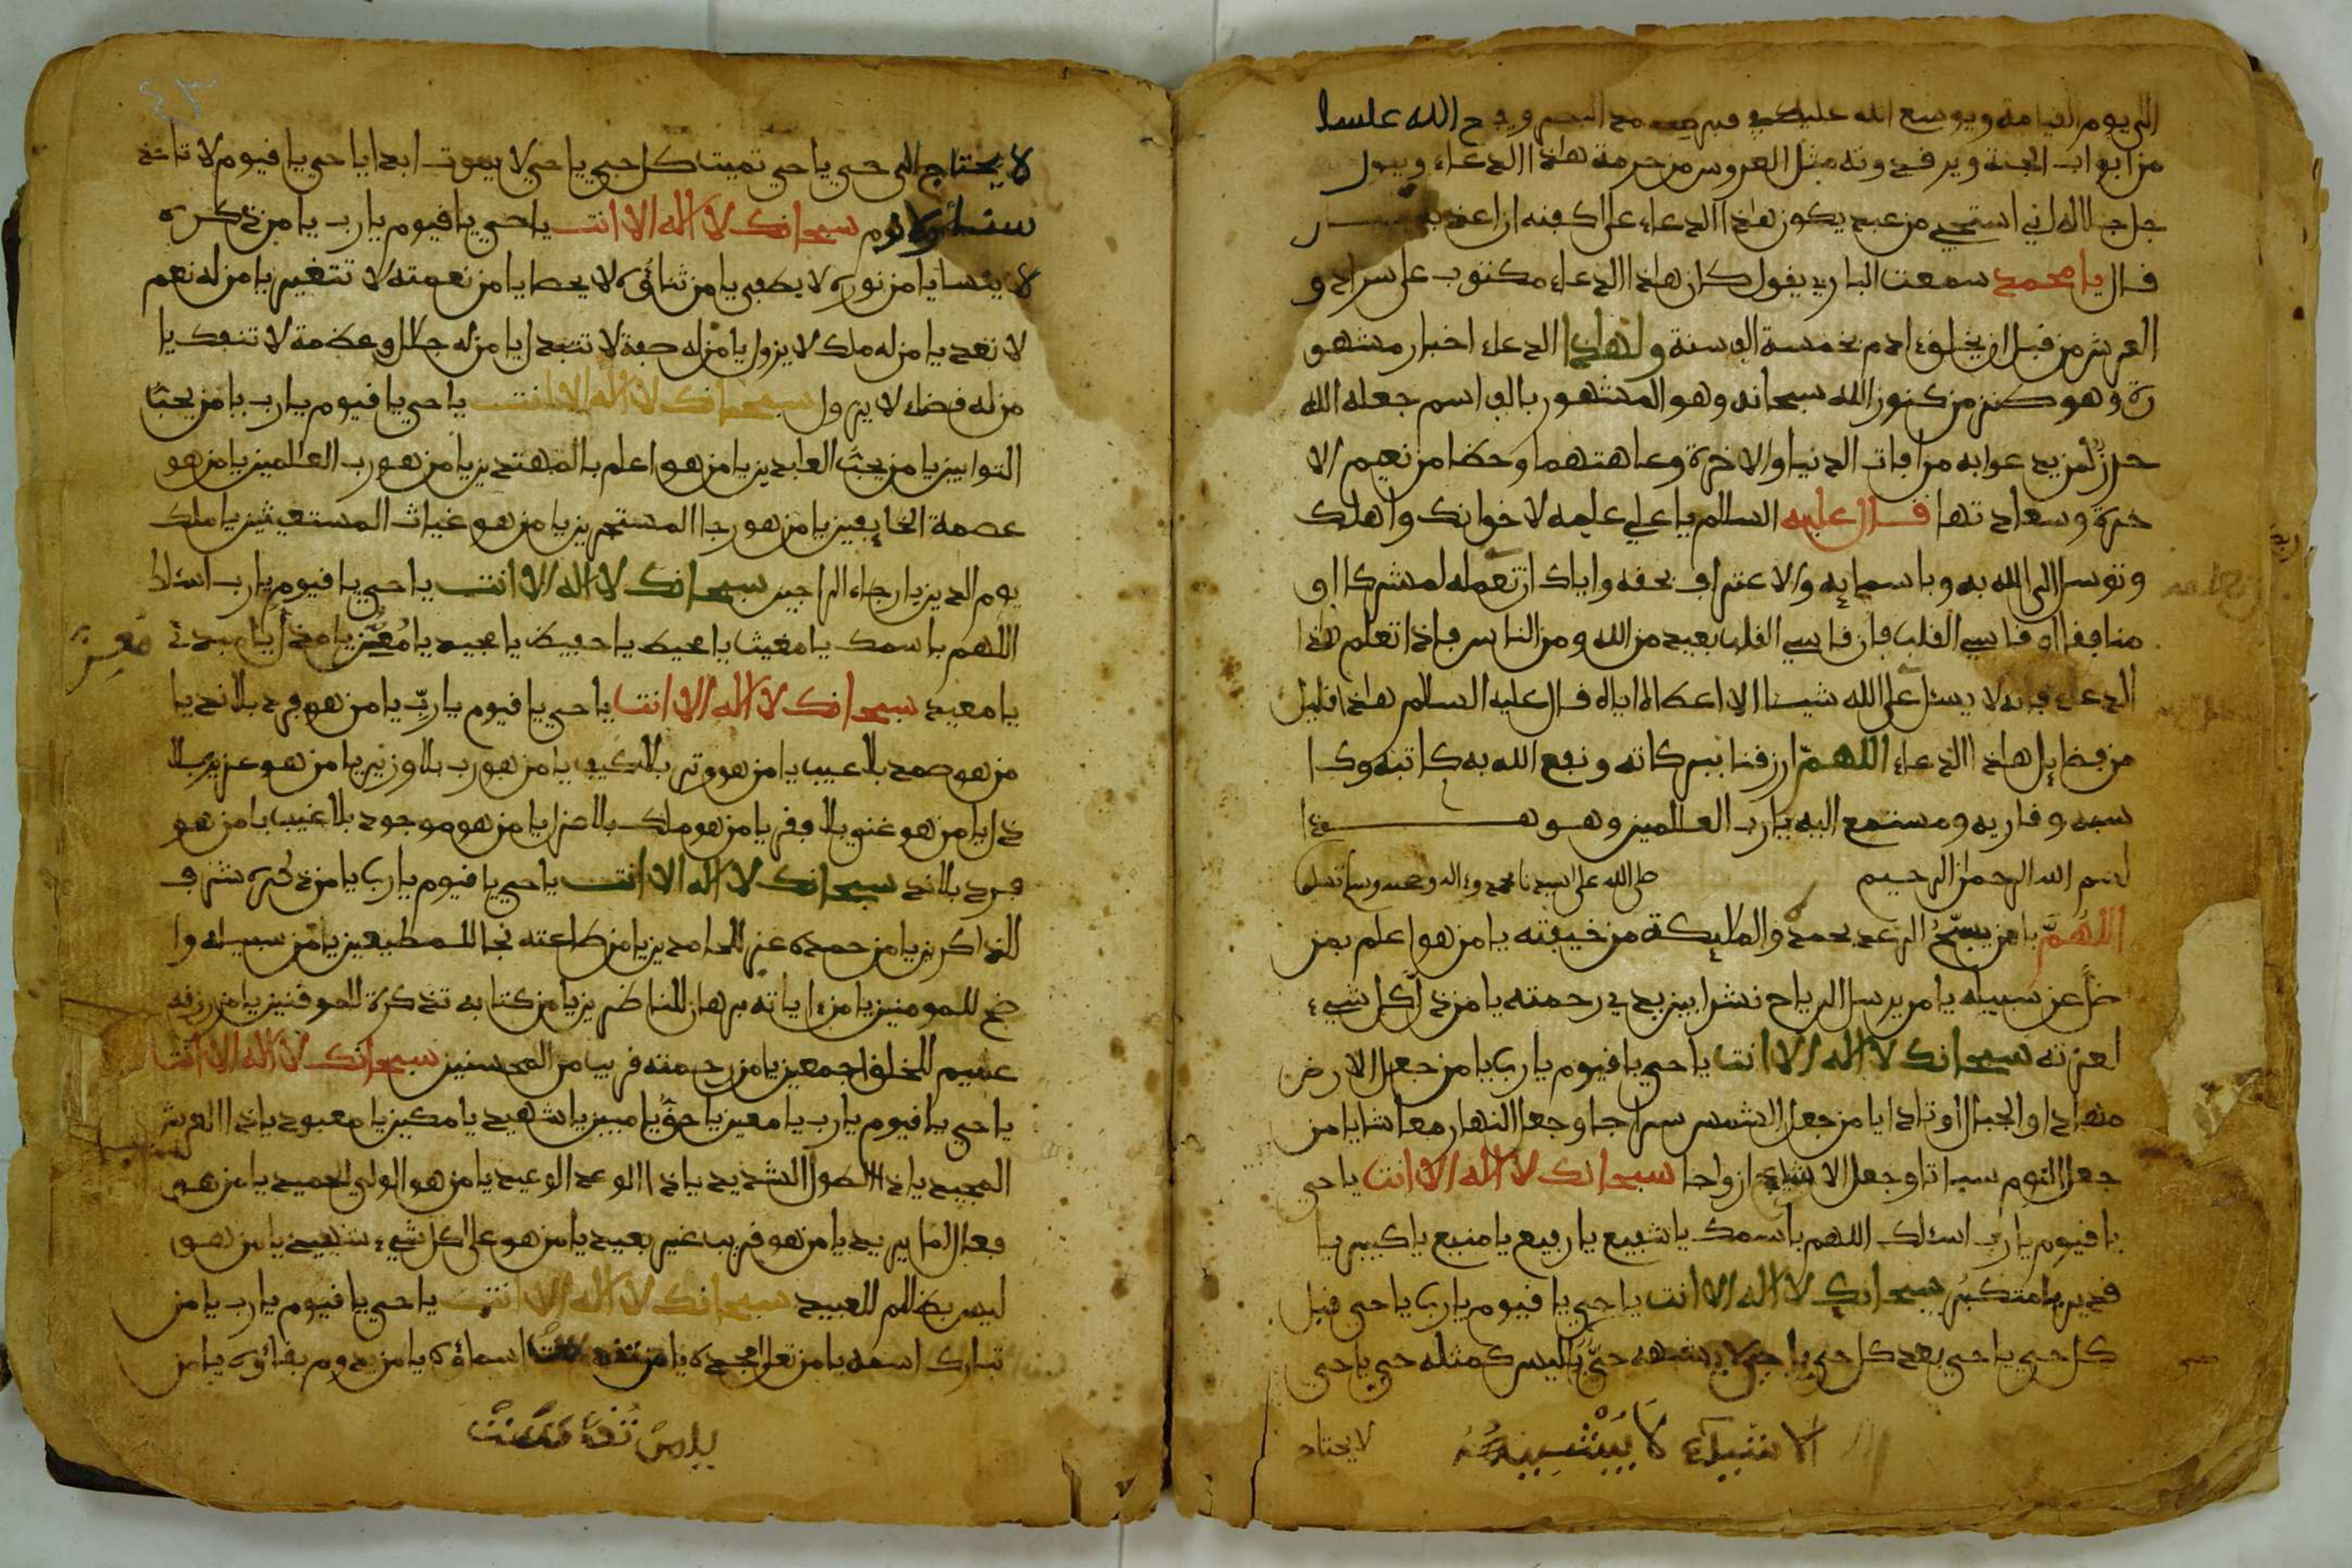 الى يوم القيامة ويوسع الله عليك في قبره مد البصر ويفتح الله عليه
من ابواب الجنة ويرقد ونه مثل العروس من حرمة هاذا الدعاء ويقول
جل جلاله اني استحي من عبد يكون هاذا الدعاء على كفنه ان اعذبه
قال يا محمد سمعت الباري يقول كان هاذا الدعاء مكتوب على سراد و
العرش من قبل ان يخلق ءادم بخمسة الف سنة ولهاذا الدعاء اخبار مشهو
رة وهو كنز من كنوز الله سبحانه وهو المشهور بالف اسم جعله الله
حرزا لمن يدعوا به من افات الدنيا والاخرة وعاهتهما وحضا من نعيم الا
خرة وسعاد تها قال عليه السلام يا علي علمه لاخوانك واهلك
وتوسل الى الله به وباسمايه والاعتراف بحقه واياك ان تعمله لمشركا او
منافقا او قاسي القلب فان قاسي القلب بعيد من الله ومن الناس فاذا تعلم هذا
الدعاء فانه لا يسئل على الله شيئا الا اعطاه اياه قال عليه السلام هاذا قليل
من فضايل هاذا الدعاء اللهم ارزقنا ببركاته ونفع الله به كاتبه وكا
سبه وقاريه ومستمع اليه يا رب العالمين وهو هـــذا
بسم الله الرحمن الرحيم صلى الله على سيدنا محمد وءاله وصحبه وسلم تسليما
اللهم يا من يسبح الرعد بحمده والملايكة من خيفته يا من هو اعلم بمن
ضل عن سبيله يا من يرسل الرياح نشرا بين يدي رحمته يا من ذل كل شيء
لعزته سبحانك لا اله الا انت يا حي يا قيوم يا رب يا من جعل الارض
مهادا والجبال اوتادا يا من جعل الشمس سراجا وجعل النهار معاشا يا من
جعل النوم سباتا وجعل الاشياء ازواجا سبحانك لا اله الا انت يا حي
يا قيوم يا رب اسئلك اللهم باسمك يا شفيع يا رفيع يا منيع يا كبير يا
قدير يا متكبر سبحانك لا اله الا انت يا حي يا قيوم يا رب يا حي قبل
كل حي يا حي بعد كل حي يا حي لا يشبهه حي يا ليس كمثله حي يا حي
الاشياء لا يشبهه
لا يحتاج
لا يحتاج الى حي يا حي تميت كل حي يا حي لا يموت ابدا يا حي يا قيوم لا تاخذ
سنة ولا نوم سبحانك لا اله الا انت يا حي يا قيوم يا رب يا من ذكره
لا ينسا يا من نوره لا يطفى يا من ثناؤه لا يحصا يا من نعمته لا تتغير يا من له نعم
لا تعد يا من له ملك لا يزول يا من له صفة لا تتبدل يا من له جلال وعظمة لا تنفك يا
من له فضل لا يزول سبحانك لا اله الا انت يا حي يا قيوم يا رب يا من يحب
التوابين يا من يحب العابدين يا من هو اعلم بالمهتدين يا من هو رب العالمين يا من هو
عصمة الخايفين يا من هو رجا المستجرين يا من هو غياث المستغيثين يا ملك
يوم الدين يا رجاء الراجين سبحانك لا اله الا انت يا حي يا قيوم يا رب اسئلك
اللهم باسمك يا مغيث يا محيط يا حفيظ يا مجيد يا معز يا مذل يا مبدئ
معز
يا معيد سبحانك لا اله الا انت يا حي يا قيوم يا رب يا من هو فرد بلا ند يا
من هو صمد بلا عيب يا من هو وتر بلا كيف يا من هو رب بلا وزير يا من هو عزيز بلا
ذل يا من هو غني بلا فقر يا من هو ملك بلا عزل يا من هو موجود بلا غيب يا من هو
فرد بلا ند سبحانك لا اله الا انت يا حي يا قيوم يا رب يا من ذكره شرف
للذاكرين يا من حمده عز للحامدين يا من طاعته نجا للمطيعين يا من سبيله وا
ضح للمومنين يا من ءاياته برهان للناضرين يا من كتابه تذكرة للموقنين يا من رزقه
عميم للخلق اجمعين يا من رحمته قريب من المحسنين سبحانك لا اله الا انت
يا حي يا قيوم يا رب يا معين يا حق يا مبين يا شهيد يا مكين يا معبود يا ذا العرش
المجيد يا ذا الطول الشديد يا ذا الوعد الوعيد يا من هو الولي الحميد يا من هو
فعال لما يريد يا من هو قريب غير بعيد يا من هو على كل شيء شهيد يا من هو
ليس بظلم للعبيد سبحانك لا اله الا انت يا حي يا قيوم يا رب يا من
تبارك اسمه يا من تعلى مجده يا من تقدست اسماؤه يا من يدوم بقاؤه يا من